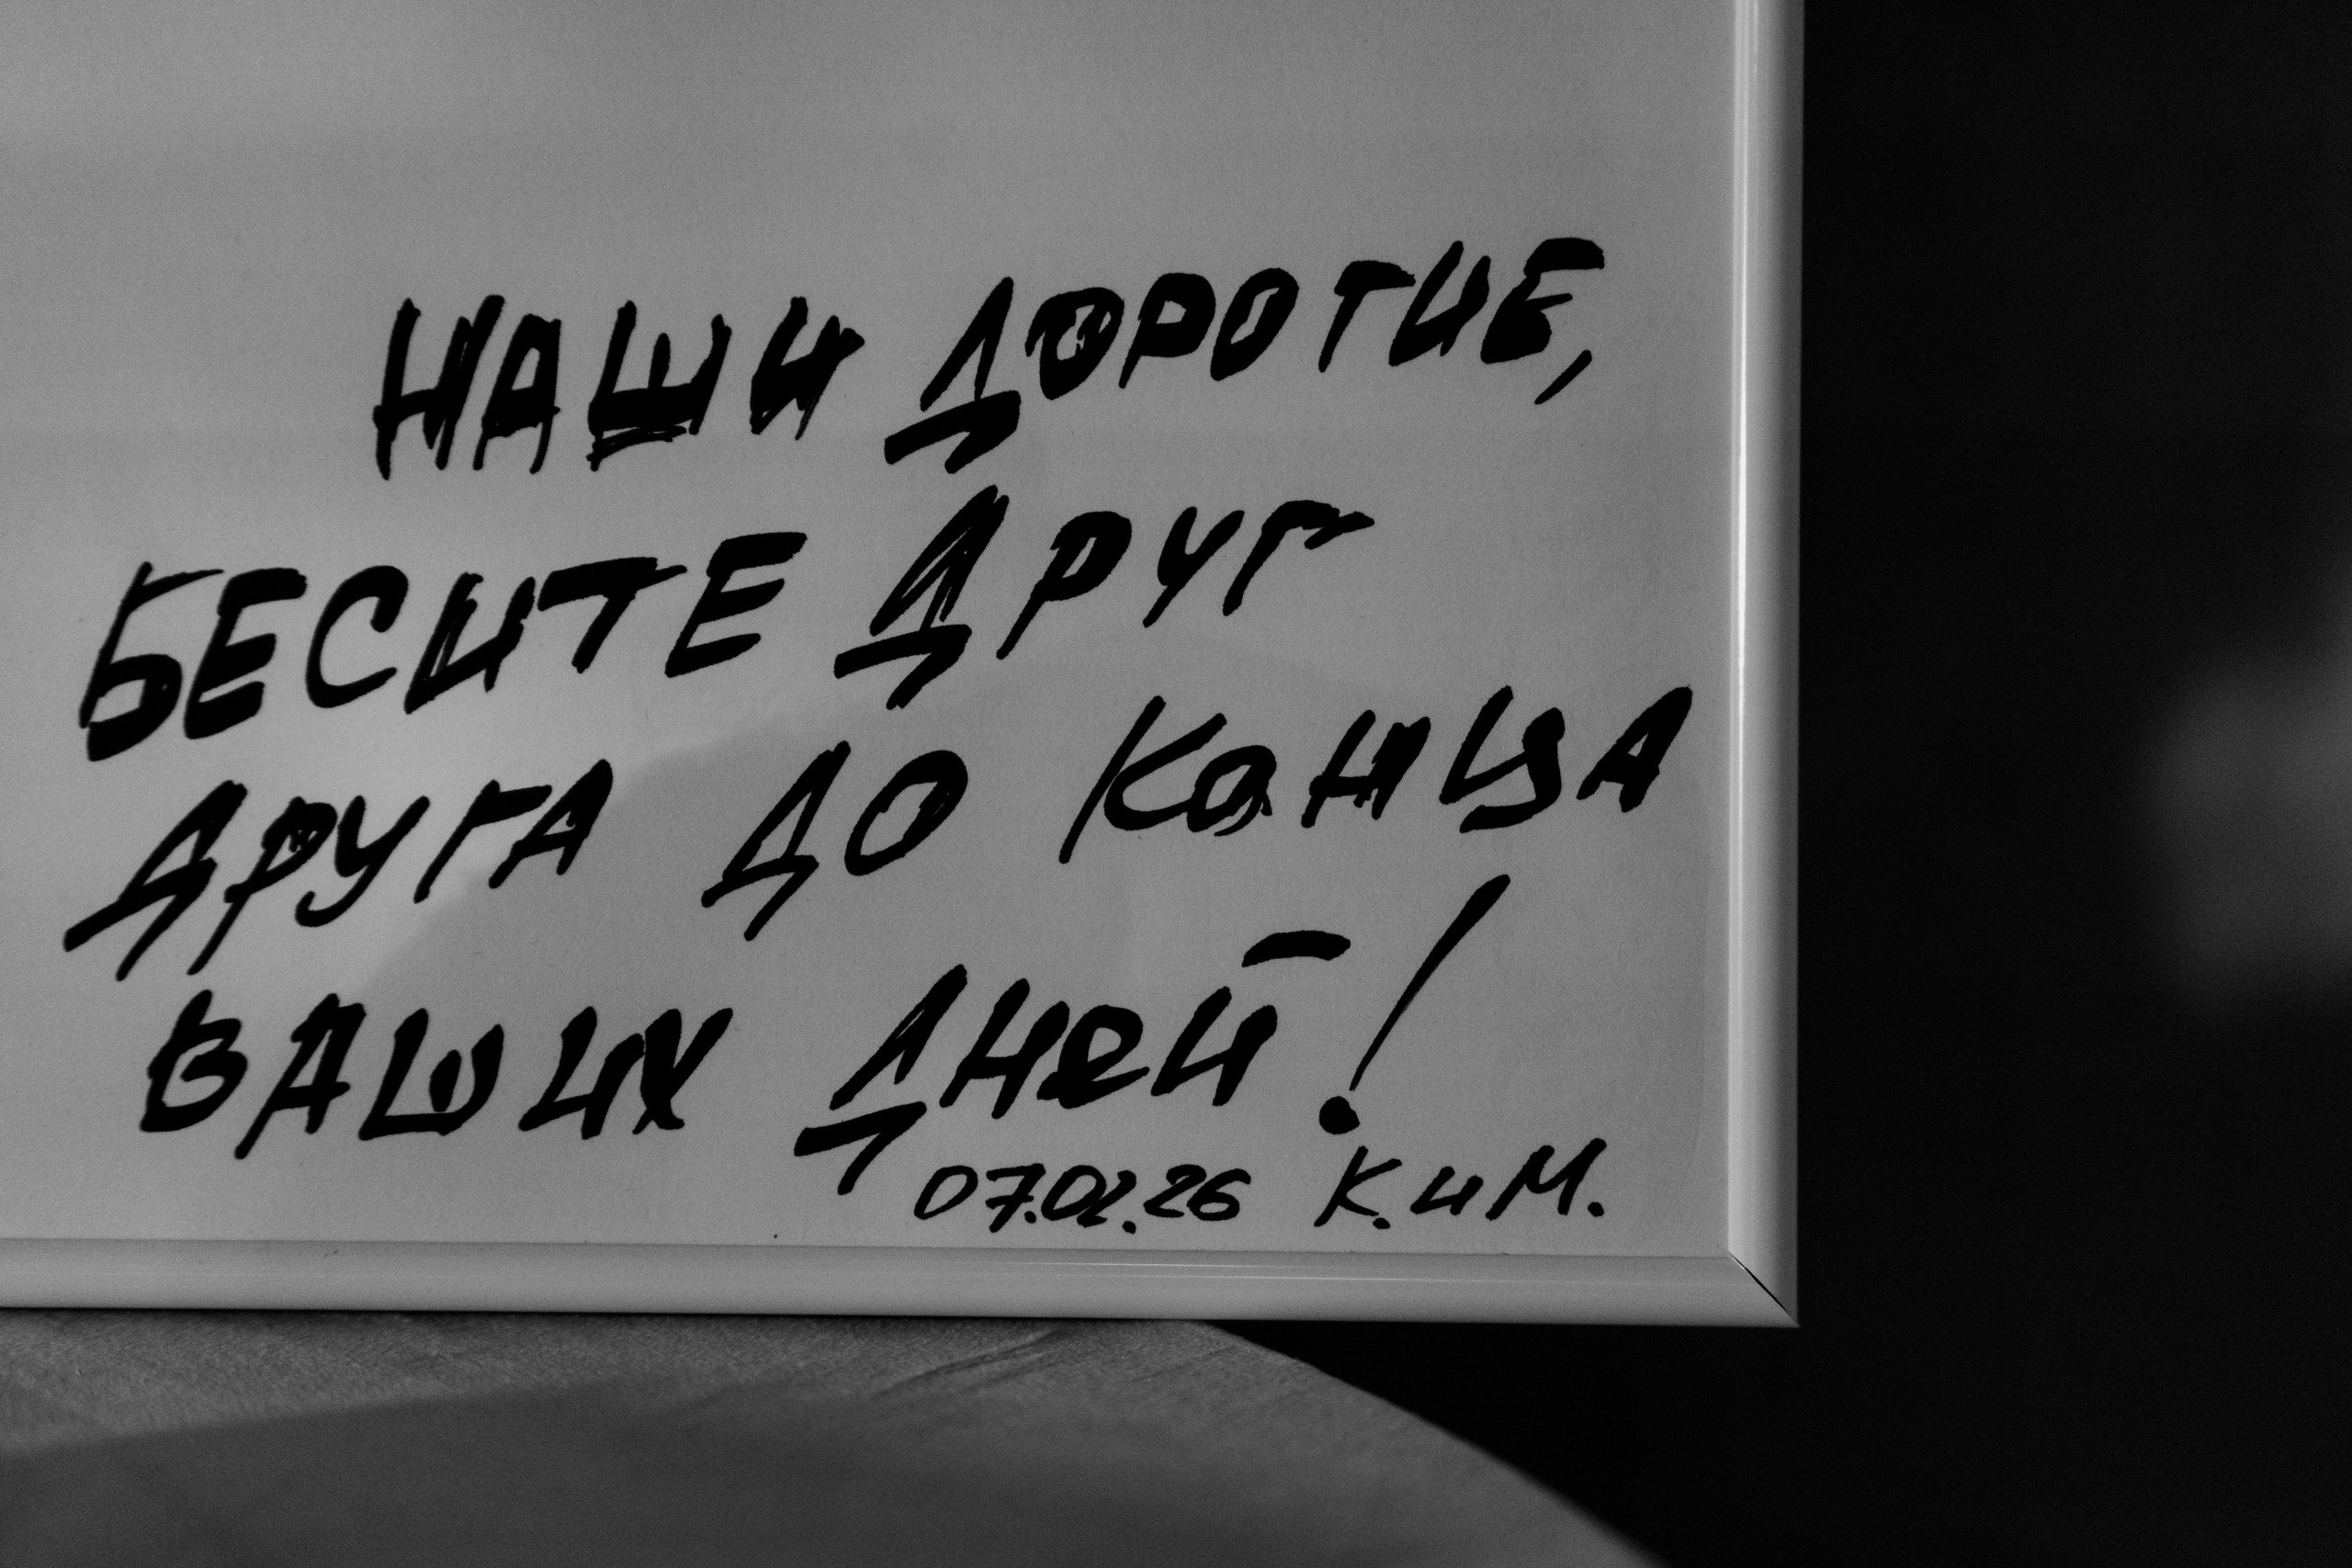 НАШИ ДОРОГИЕ,
БЕСИТЕ ДРУГ
ДРУГА ДО КОНЦА
ВАШИХ ДНЕЙ!
07.02.26 К. и М.